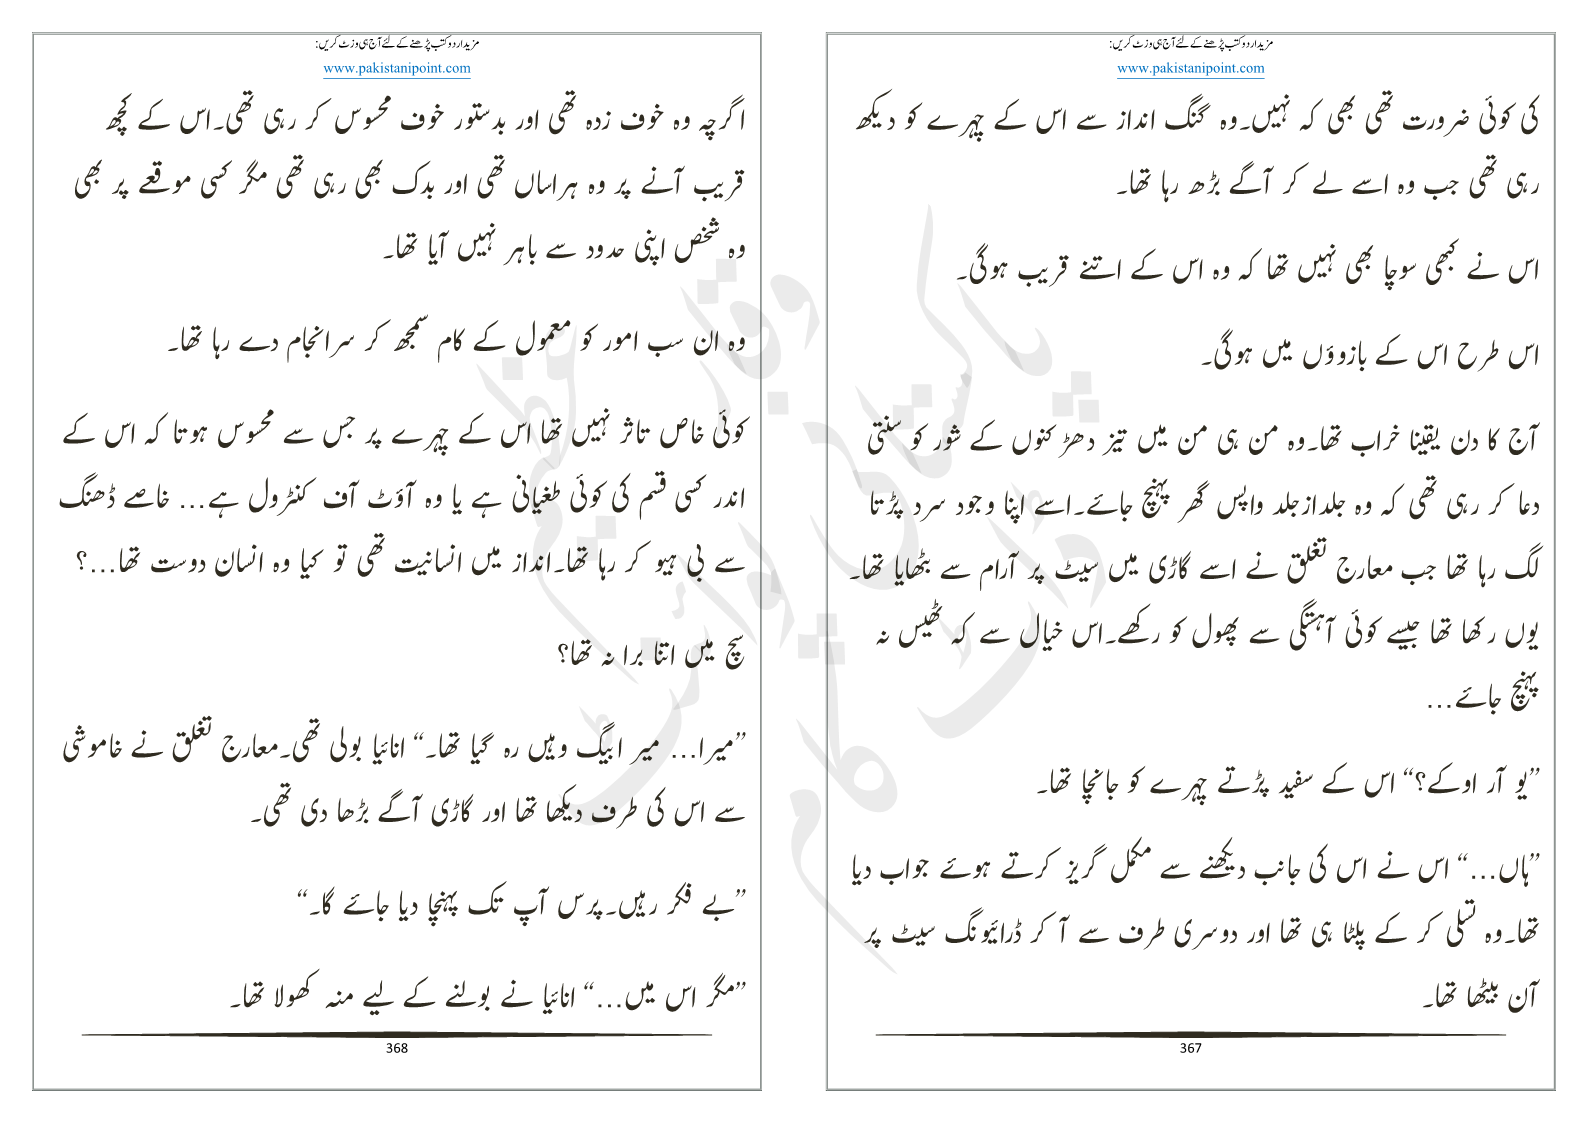 مزید اردو کتب پڑھنے کے لئے آج ہی وزٹ کریں:
www.pakistanipoint.com
کی کوئی ضرورت تھی بھی کہ نہیں۔وہ گنگ انداز سے اس کے چہرے کو دیکھ
رہی تھی جب وہ اسے لے کر آگے بڑھ رہا تھا۔
اس نے کبھی سوچا بھی نہیں تھا کہ وہ اس کے اتنے قریب ہوگی۔
اس طرح اس کے بازوؤں میں ہوگی۔
آج کا دن یقینا خراب تھا۔وہ من ہی من میں تیز دھڑکنوں کے شور کو سنتی
دعا کر رہی تھی کہ وہ جلدازجلد واپس گھر پہنچ جائے۔اسے اپنا وجود سرد پڑتا
لگ رہا تھا جب معارج تغلق نے اسے گاڑی میں سیٹ پر آرام سے بٹھایا تھا۔
یوں رکھا تھا جیسے کوئی آہستگی سے پھول کو رکھے۔اس خیال سے کہ ٹھیس نہ
پہنچ جائے...
”یو آر اوکے؟“ اس کے سفید پڑتے چہرے کو جانچا تھا۔
”ہاں...“ اس نے اس کی جانب دیکھنے سے مکمل گریز کرتے ہوئے جواب دیا
تھا۔وہ تسلی کر کے پلٹا ہی تھا اور دوسری طرف سے آ کر ڈرائیونگ سیٹ پر
آن بیٹھا تھا۔
367
مزید اردو کتب پڑھنے کے لئے آج ہی وزٹ کریں:
www.pakistanipoint.com
اگرچہ وہ خوف زدہ تھی اور بدستور خوف محسوس کر رہی تھی۔اس کے کچھ
قریب آنے پر وہ ہراساں تھی اور بدک بھی رہی تھی مگر کسی موقعے پر بھی
وہ شخص اپنی حدود سے باہر نہیں آیا تھا۔
وہ ان سب امور کو معمول کے کام سمجھ کر سرانجام دے رہا تھا۔
کوئی خاص تاثر نہیں تھا اس کے چہرے پر جس سے محسوس ہوتا کہ اس کے
اندر کسی قسم کی کوئی طغیانی ہے یا وہ آؤٹ آف کنٹرول ہے... خاصے ڈھنگ
سے بی ہیو کر رہا تھا۔انداز میں انسانیت تھی تو کیا وہ انسان دوست تھا...؟
سچ میں اتنا برا نہ تھا؟
”میرا... میر ابیگ وہیں رہ گیا تھا۔“ انائیا بولی تھی۔معارج تغلق نے خاموشی
سے اس کی طرف دیکھا تھا اور گاڑی آگے بڑھا دی تھی۔
”بے فکر رہیں۔پرس آپ تک پہنچا دیا جائے گا۔“
”مگر اس میں...“ انائیا نے بولنے کے لیے منہ کھولا تھا۔
368
پاکستانی پوائنٹ ڈاٹ کام
وقار عظیم